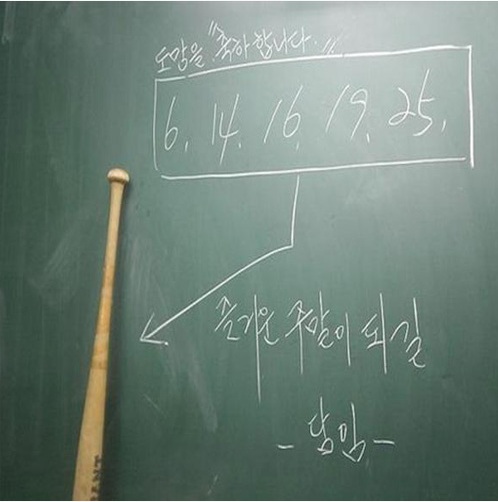 도망을 "축하합니다."
6. 14. 16. 19. 25.
즐거운 주말이 되길
- 담임 -
ANT